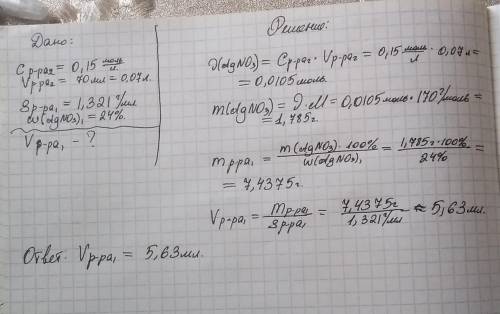 Дано:
C р-ра2 = 0,15 моль/л
V р-ра2 = 70 мл = 0,07 л.
ρ р-ра1 = 1,321 г/мл
ω(AgNO3)1 = 24%.
V р-ра1 - ?
Решение:
ν(AgNO3) = C р-ра2 · V р-ра2 = 0,15 моль/л · 0,07 л =
= 0,0105 моль.
m(AgNO3) = ν · M = 0,0105 моль · 170 г/моль =
= 1,785 г.
m р-ра1 = m(AgNO3) · 100% / ω(AgNO3)1 = 1,785 г · 100% / 24% =
= 7,4375 г.
V р-ра1 = m р-ра1 / ρ р-ра1 = 7,4375 г / 1,321 г/мл ≈ 5,63 мл.
Ответ. V р-ра1 = 5,63 мл.